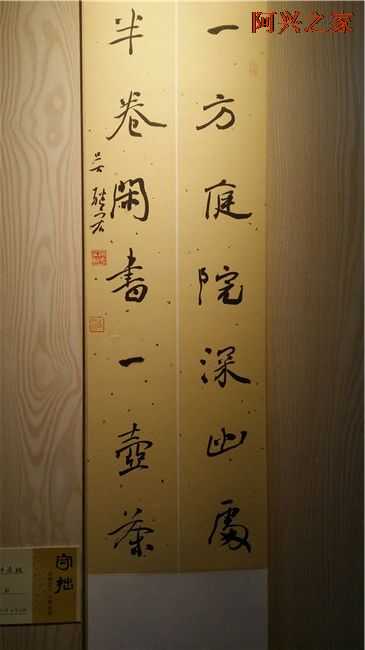 阿兴之家
一方庭院深幽處
半卷閑書一壺茶
守拙